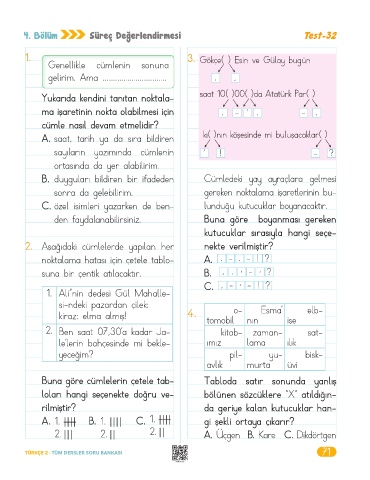 4. Bölüm
Süreç Değerlendirmesi
Test-32
1.
Genellikle cümlenin sonuna
gelirim. Ama ..............................
Yukarıda kendini tanıtan noktala-
ma işaretinin nokta olabilmesi için
cümle nasıl devam etmelidir?
A. saat, tarih ya da sıra bildiren
sayıların yazımında cümlenin
ortasında da yer alabilirim.
B. duyguları bildiren bir ifadeden
sonra da gelebilirim.
C. özel isimleri yazarken de ben-
den faydalanabilirsiniz.
2. Aşağıdaki cümlelerde yapılan her
noktalama hatası için çetele tablo-
suna bir çentik atılacaktır.
1. Ali'nin dedesi Gül Mahalle-
si-ndeki pazardan çilek.
kiraz; elma almış!
2. Ben saat 07,30'a kadar Ja-
le'lerin bahçesinde mi bekle-
yeceğim?
Buna göre cümlelerin çetele tab-
loları hangi seçenekte doğru ve-
rilmiştir?
A. 1. B. 1. C. 1.
2. 2. 2.
3. Gökçe( ) Esin ve Gülay bugün
saat 10( )00( )da Atatürk Par( )
kı( )nın köşesinde mi buluşacaklar( )
Cümledeki yay ayraçlara gelmesi
gereken noktalama işaretlerinin bu-
lunduğu kutucuklar boyanacaktır.
Buna göre boyanması gereken
kutucuklar sırasıyla hangi seçe-
nekte verilmiştir?
A.
B.
C.
4.
o-
tomobil
Esma'
nın
elb-
ise
kitab-
ımız
zaman-
lama
sat-
ılık
pil-
avlık
yu-
murta
bisk-
üvi
Tabloda satır sonunda yanlış
bölünen sözcüklere "X" atıldığın-
da geriye kalan kutucuklar han-
gi şekli ortaya çıkarır?
A. Üçgen B. Kare C. Dikdörtgen
TÜRKÇE 2 TÜM DERSLER SORU BANKASI
71